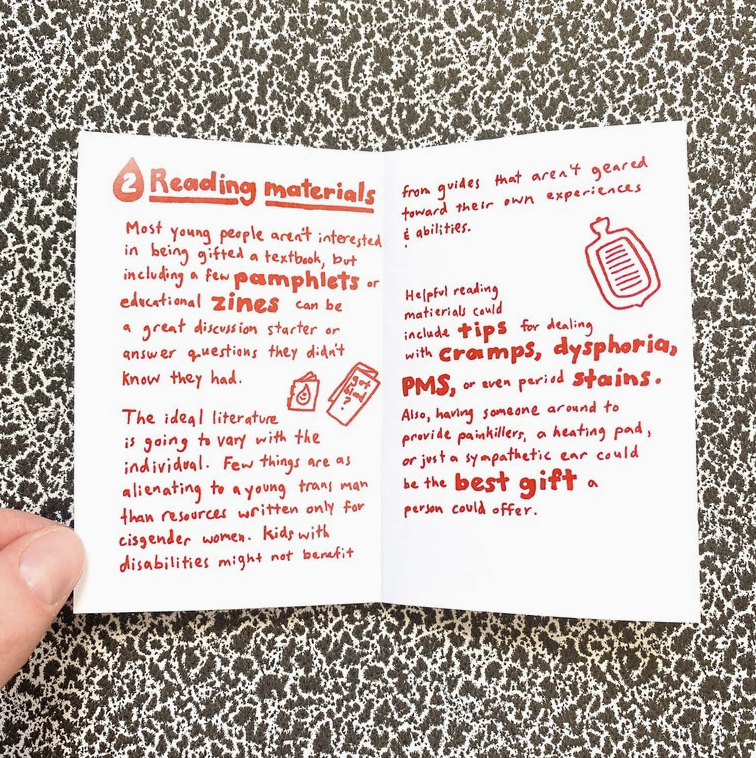 2 Reading materials
Most young people aren't interested
in being gifted a textbook, but
including a few pamphlets or
educational zines can be
a great discussion starter or
answer questions they didn't
know they had.
The ideal literature
is going to vary with the
individual. Few things are as
alienating to a young trans man
than resources written only for
cisgender women. Kids with
disabilities might not benefit
got
?
from guides that aren't geared
toward their own experiences
& abilities.
Helpful reading
matierials could
include tips for dealing
with cramps, dysphoria,
PMS, or even period stains.
Also, having someone around to
provide painkillers, a heating pad,
or just a sympathetic ear could
be the best gift a
person could offer.